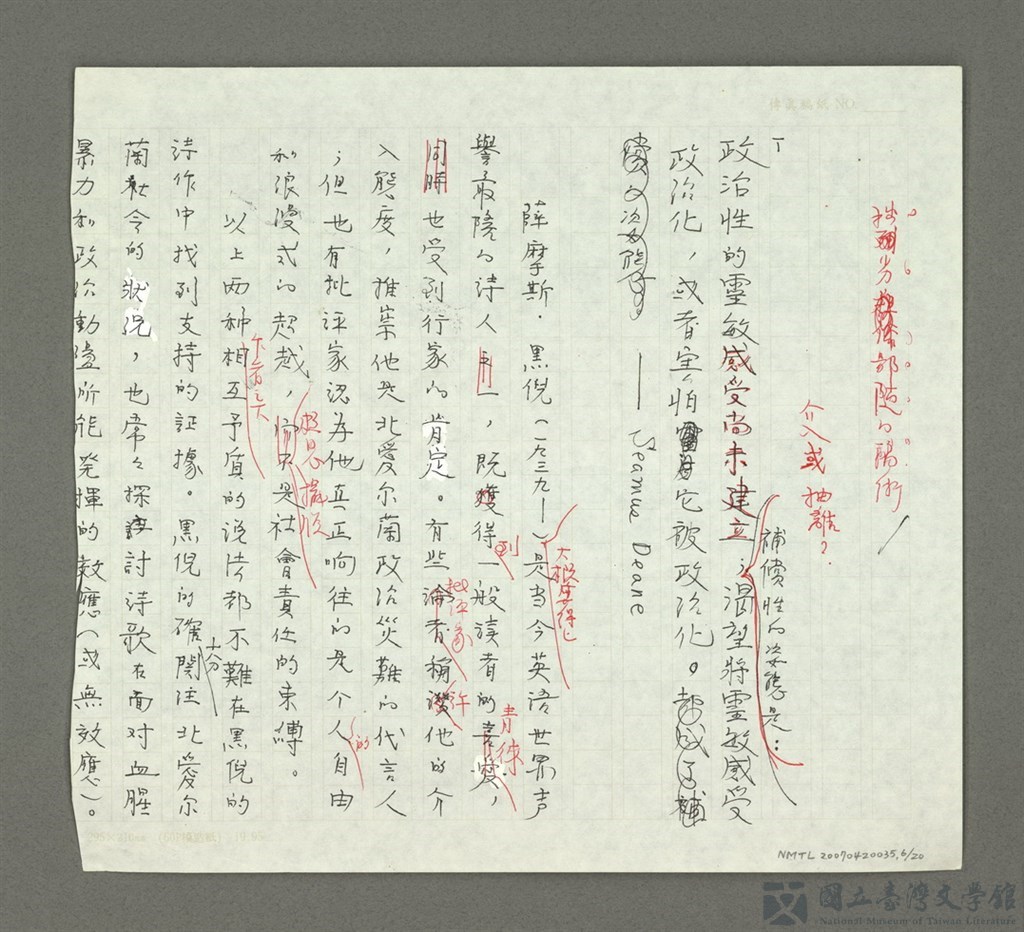 介入或抽離？
政治性的靈敏感受尚未建立；渴望將靈敏感受
補償性的姿態是…
政治化，或者害怕它被政治化。
—— Seamus Deane
薛摩斯．黑倪（一九三九—）是当今英语世界声
大概算得上
譽最隆的诗人　一，既獲得一般读者的喜愛，
到
青徠
同時也受到行家的肯定。有些論者稱讚他的介
批评家
許
入態度，推崇他是北爱尔蘭政治災難的代言人
；但也有批评家認為他真正响往的是个人自由
的
和浪漫式的超越，而不是社會責任的束縛。
以上两种相互矛盾的说法都不難在黑倪的
诗作中找到支持的証據。黑倪的確關注北爱尔
十分
蘭社会的狀況，也常々探討詩歌在面对血腥
暴力和政治動盪所能発揮的效應（或無效應）。
NMTL 20070420035,6/20
國立臺灣文學館
National Museum of Taiwan Literature